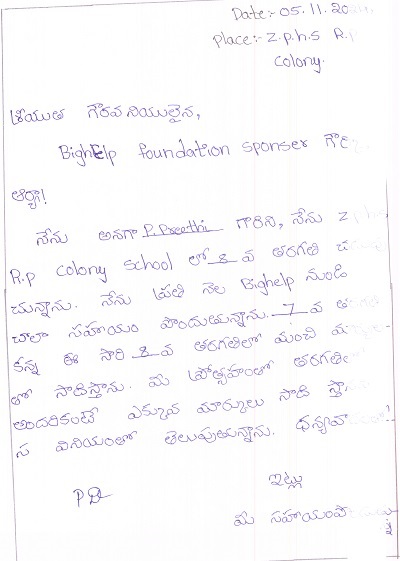 Date:- 05.11.20
Place:- Z.p.h.s R.
Colony.
శ్రీయుత గౌరవనియులైన,
BigHElp foundation sponser
ఆర్యా!
నేను అనగా P. Preethi గారిని, నేను Z
R.p colony school లో 8 వ తరగతి
చున్నాను. నేను ప్రతి నెల Bighelp నుండి
చాలా సహాయం పొందుతున్నాను. 7 వ
కన్న ఈ సారి 8 వ తరగతిలో మంచి
తో సాదిస్తాను. మీ ప్రోత్సహంలో
అందరికంటే ఎక్కువ మార్కులు సాది
స వినియంలో తెలుపుతున్నాను.
ఇట్లు
మీ